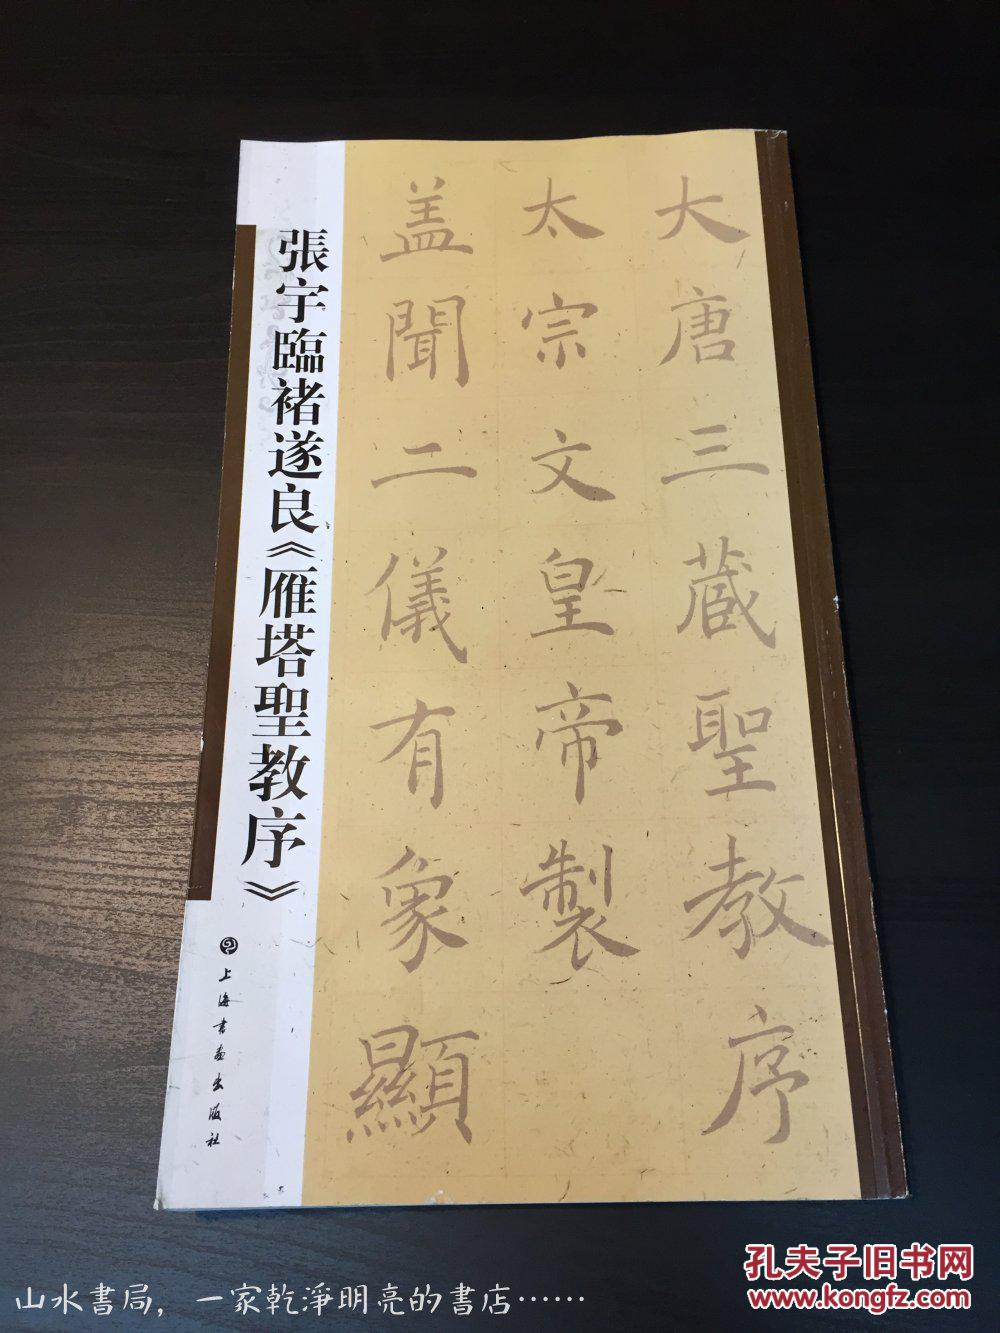 大唐三藏聖教序
太宗文皇帝製
盖聞二儀有象顯
張宇臨褚遂良《雁塔聖教序》
上海書畫出版社
山水書局，一家乾淨明亮的書店……
孔夫子旧书网
www.kongfz.com